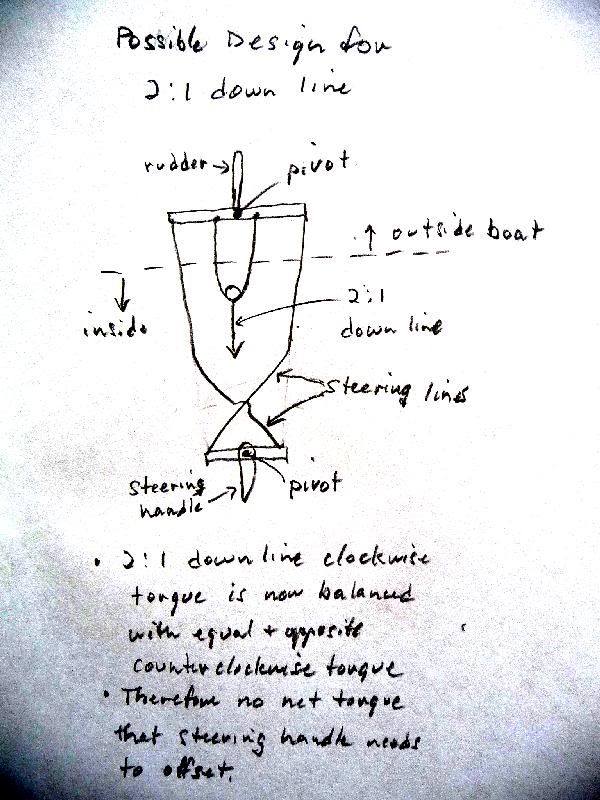 Possible Design for
2:1 down line
rudder
pivot
outside boat
inside
2:1
down line
steering lines
steering
handle
pivot
• 2:1 down line clockwise
torque is now balanced
with equal + opposite
counterclockwise torque
• Therefore no net torque
that steering handle needs
to offset.